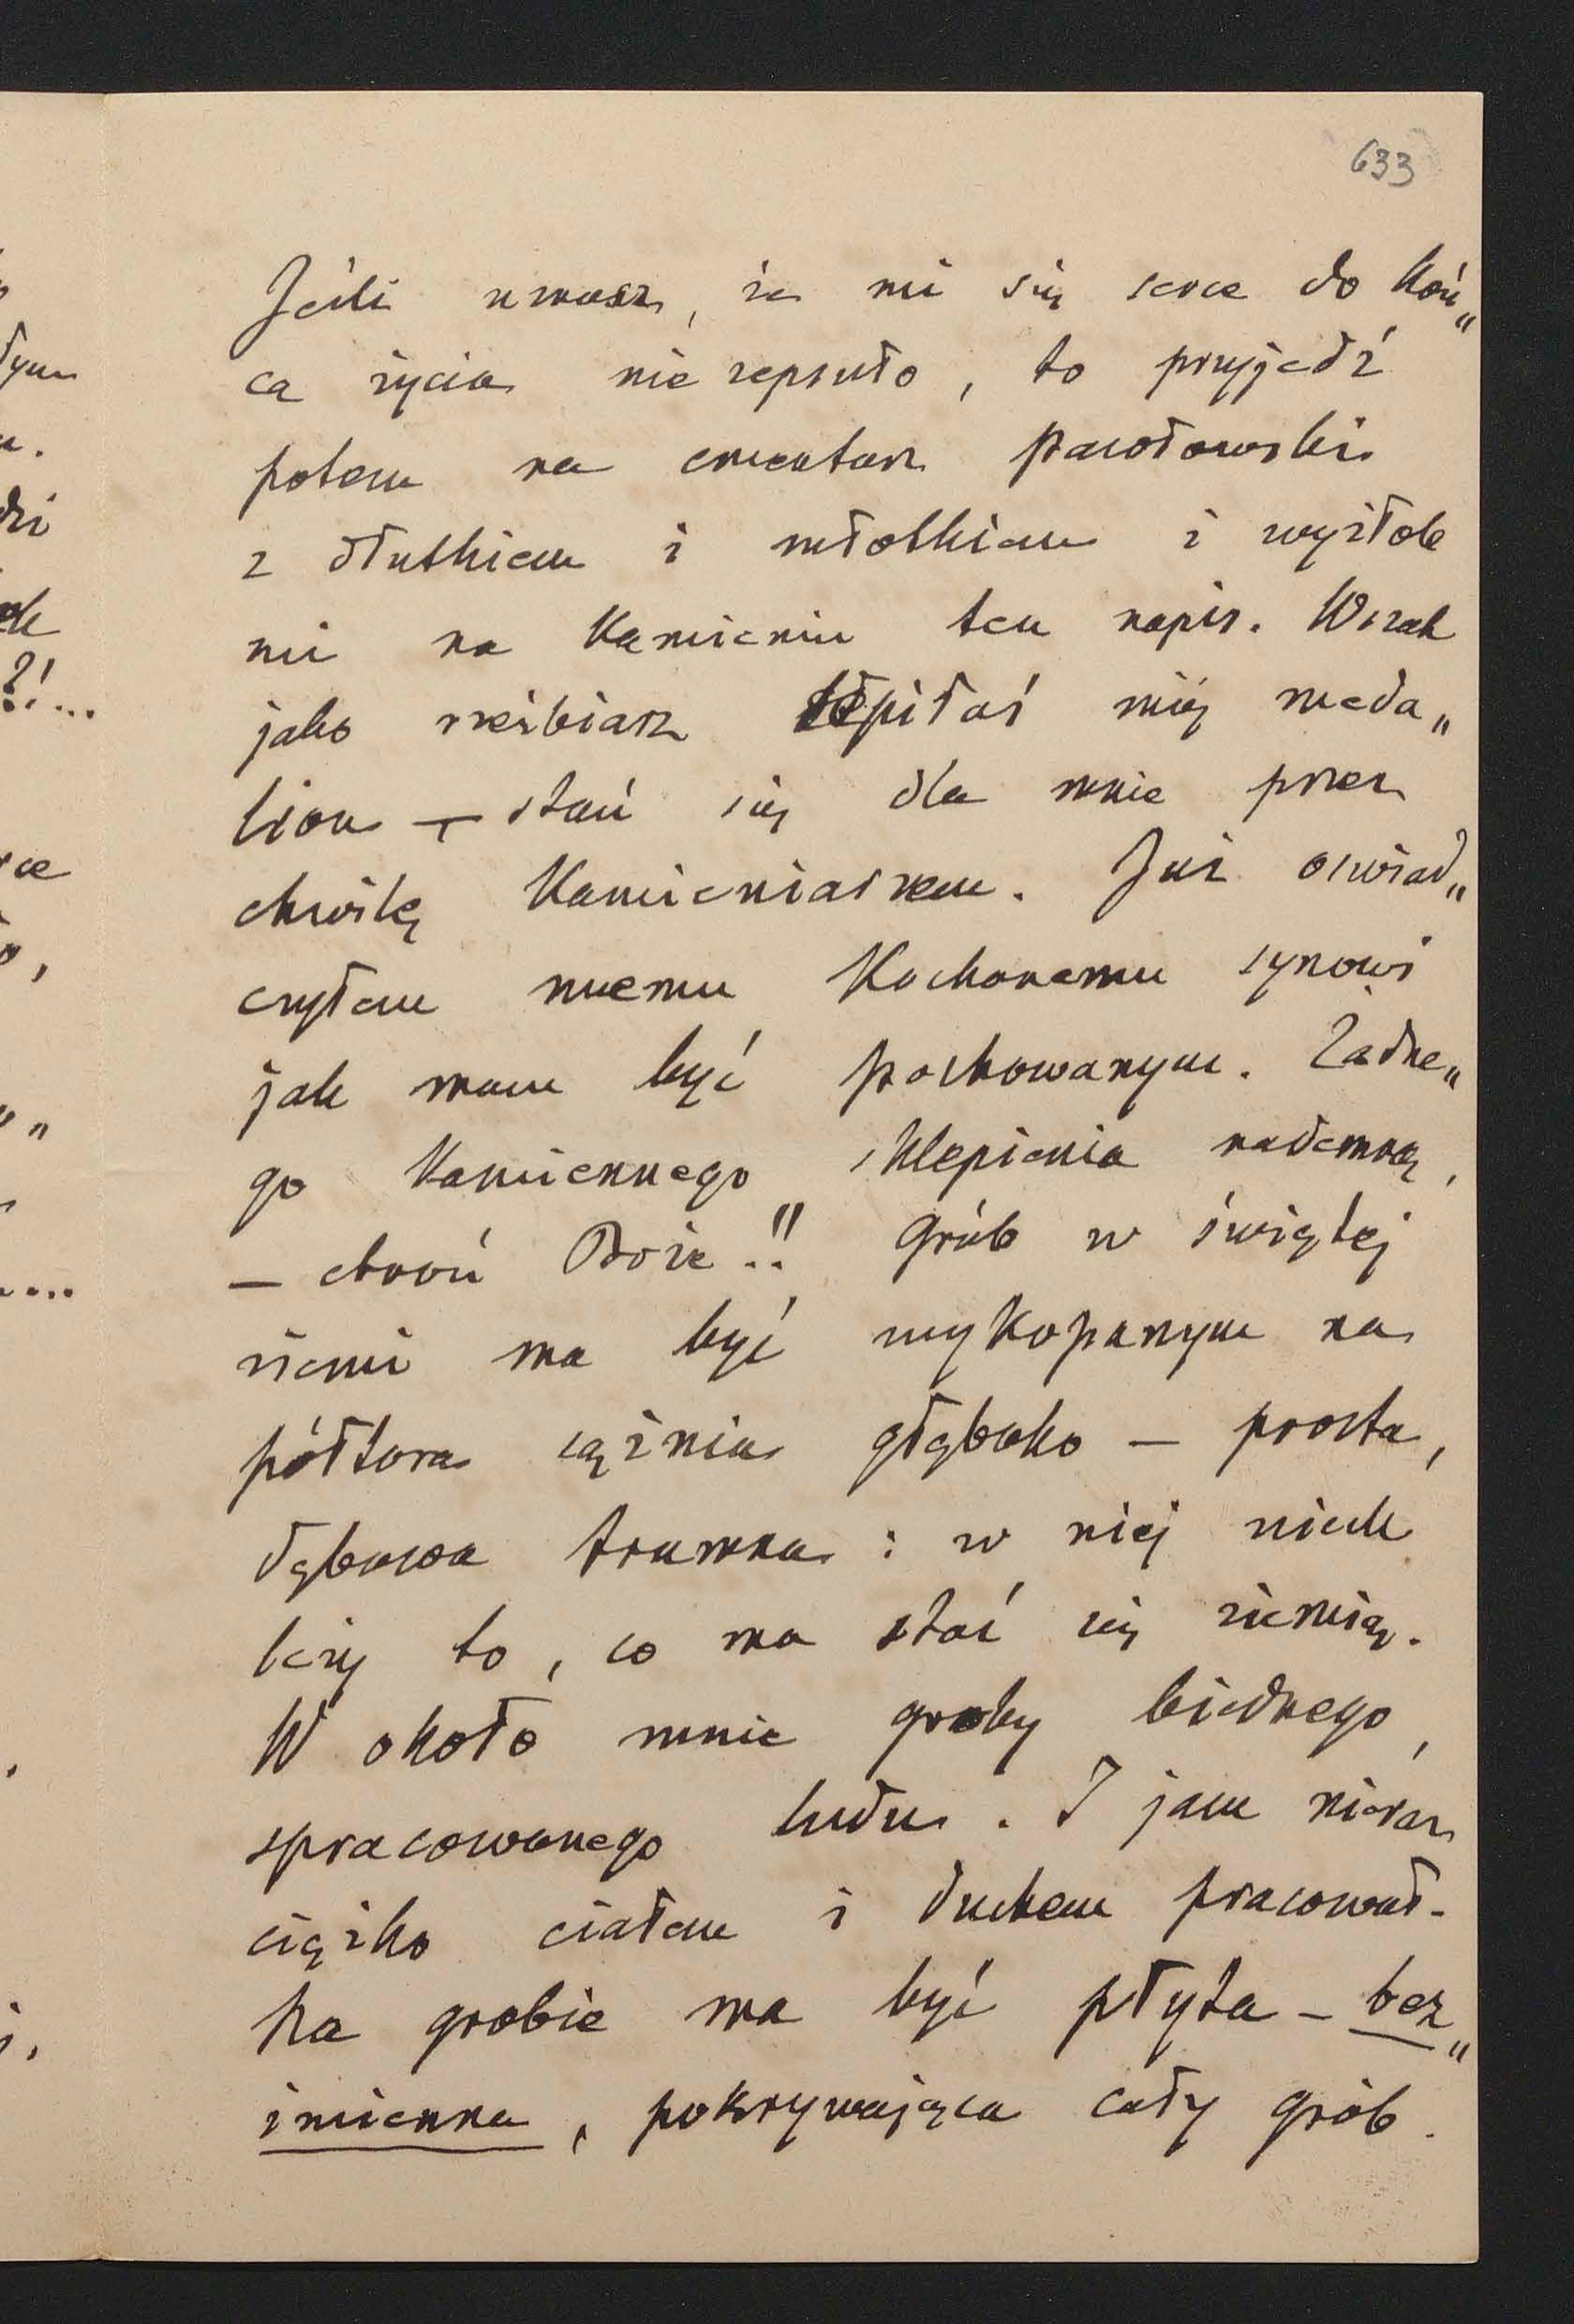 633
Jeśli uważasz, że mi się serce do koń„
ca życia nie zepsuło, to przyjedź
potem na cmentarz pawołowski
z dłutkiem i młotkiem i wyżłob
mi na kamieniu ten napis. Wszak
jako rzeźbiarz lepiłaś mój meda„
lion — stań się dla mnie przez
chwilę kamieniarzem. Już oświad„
czyłem memu kochanemu synowi
jak mam być pochowanym. Żadne„
go kamiennego sklepienia nademną,
— chroń Boże!! Grób w świętej
ziemi ma być wykopanym na
półtora sążnia głęboko — prosta,
dębowa trumna: w niej niech
leży to, co ma stać się ziemią.
W około mnie groby biednego,
spracowanego ludu. I jam nieraz
ciężko ciałem i duchem pracował.
Na grobie ma być płyta — bez„
imienna, pokrywająca cały grób.